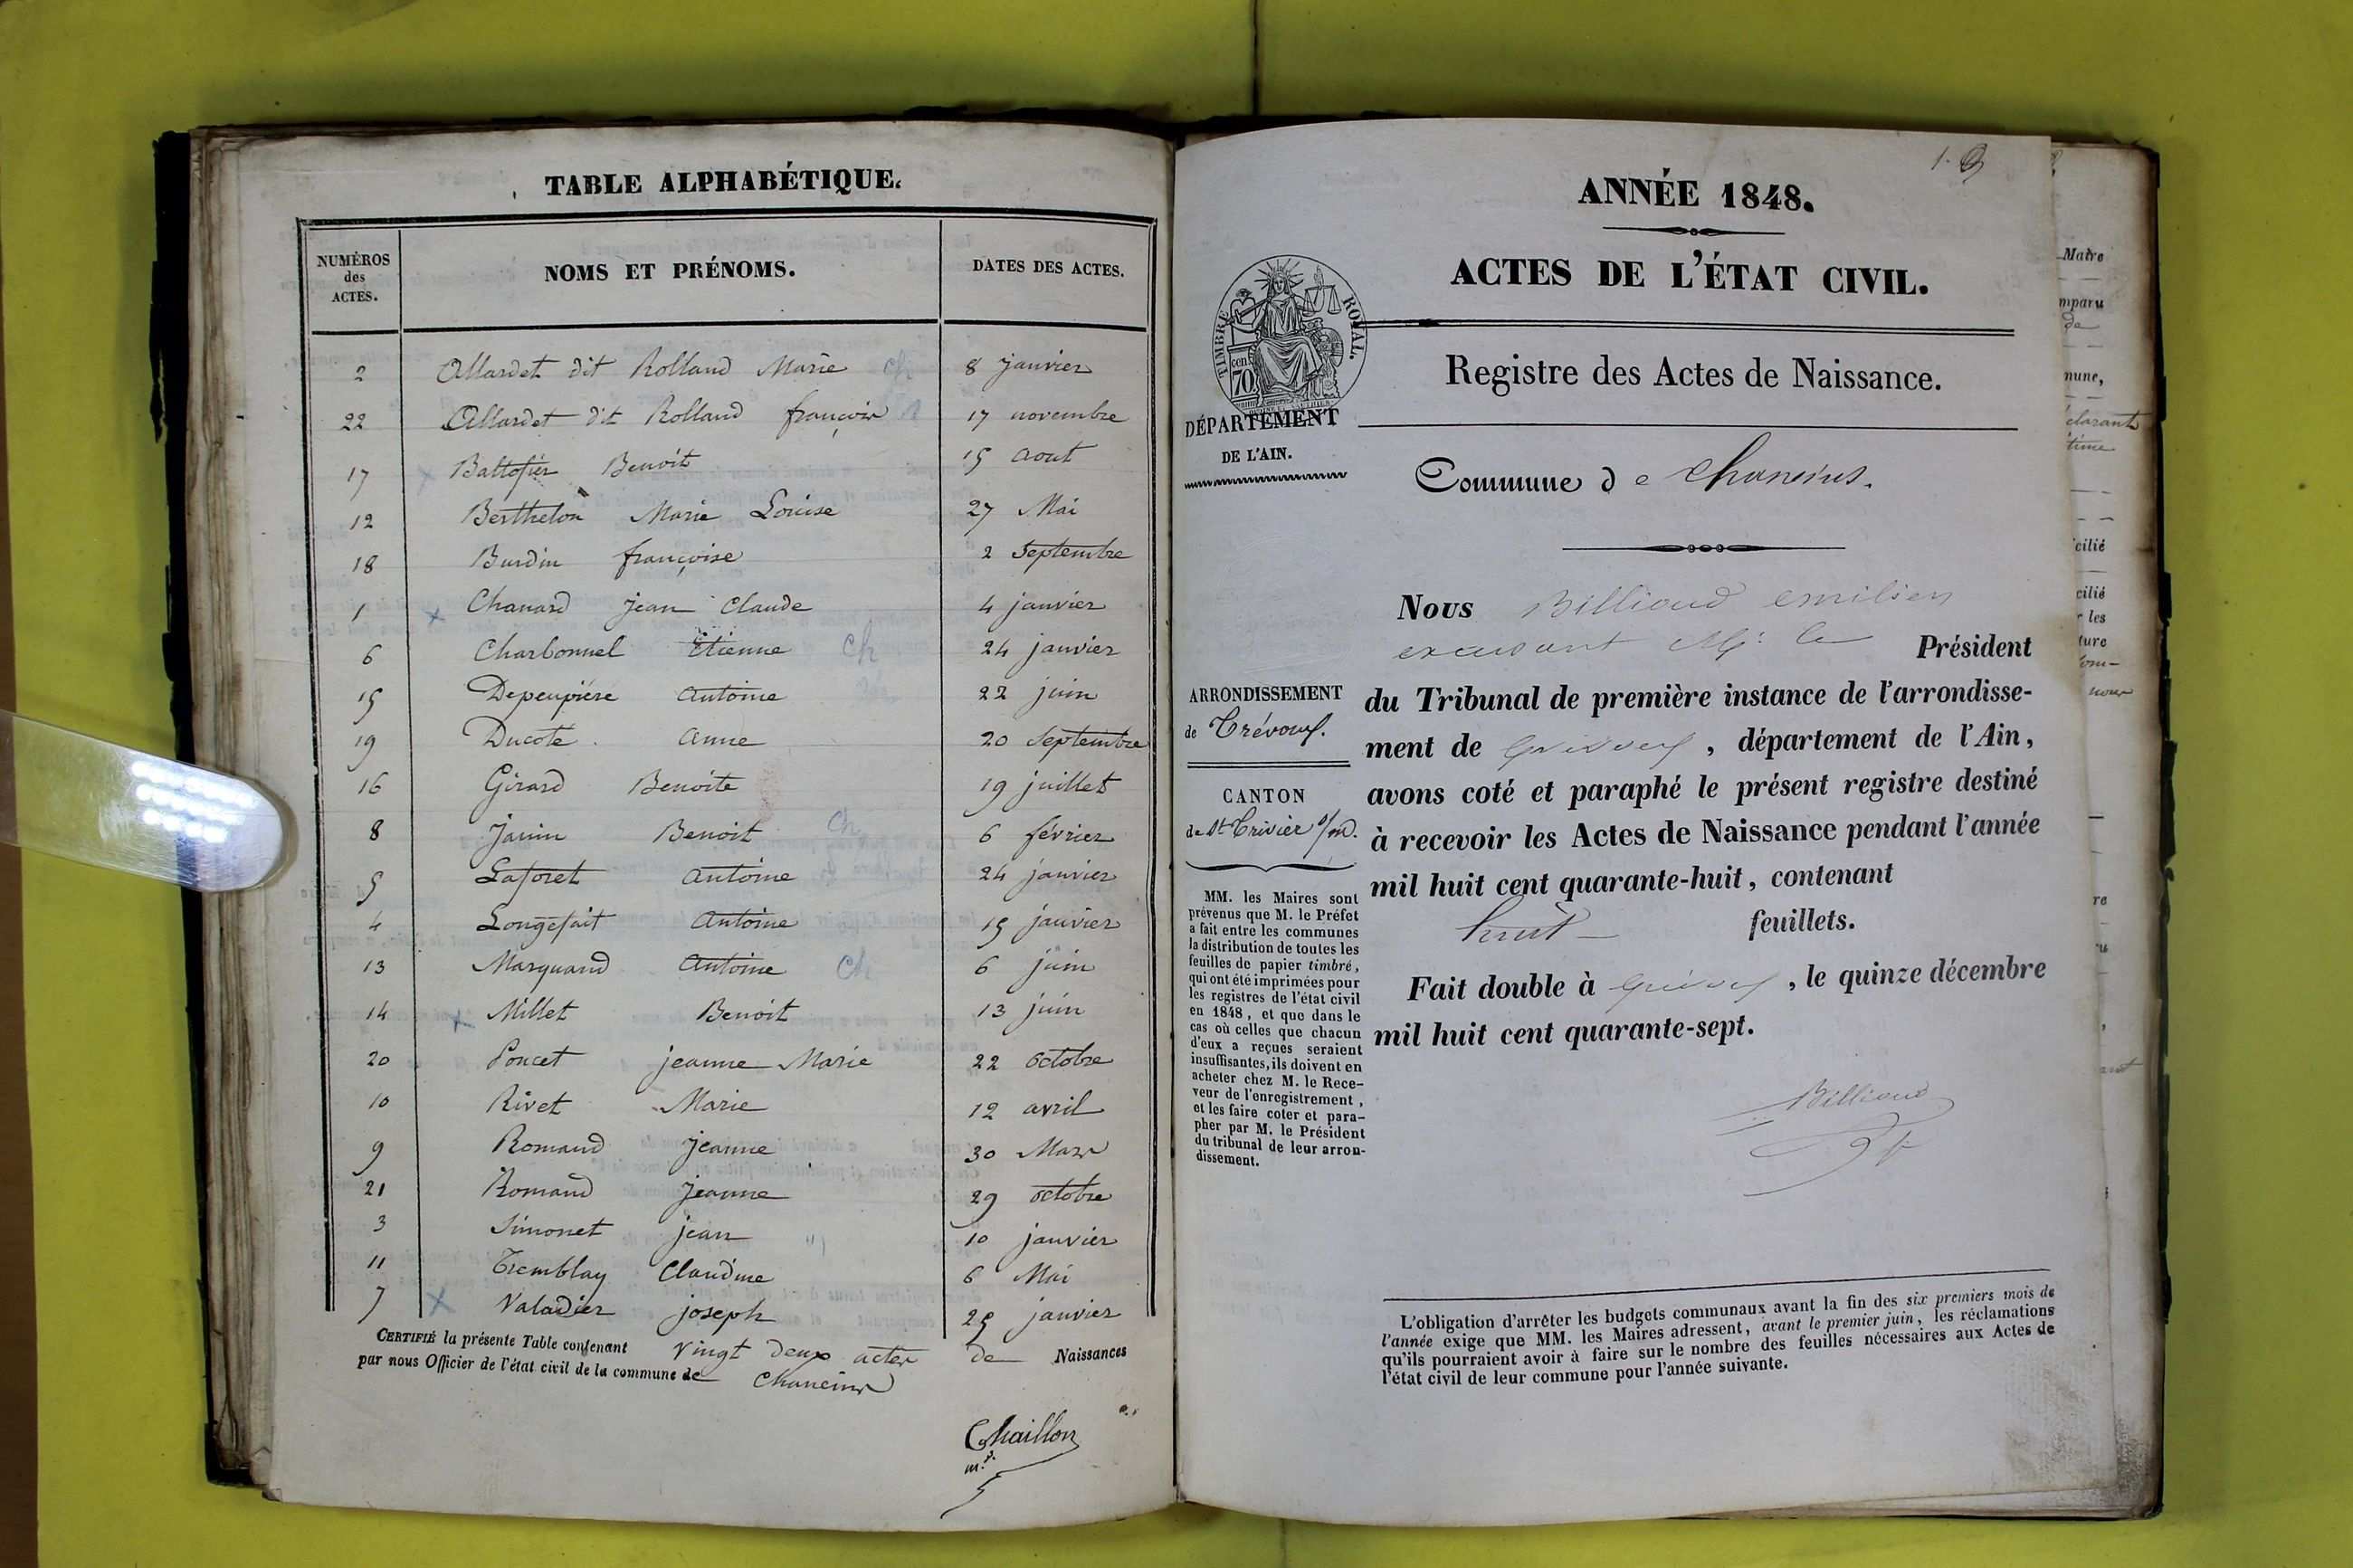 TABLE ALPHABÉTIQUE.
NUMÉROS des ACTES. NOMS ET PRÉNOMS. DATES DES ACTES.
2 Allardet dit Rolland Marie ch 8 janvier
22 Allardet dit Rolland françois 17 novembre
17 x Battofier Benoit 15 aout
12 Berthelon Marie Louise 27 Mai
18 Burdin françoise 2 Septembre
1 x Chanard jean Claude 4 janvier
6 Charbonnel Etienne Ch 24 janvier
15 Depeupière antoine 22 juin
19 Ducote anne 20 Septembre
16 Girard Benoite 19 juillet
8 Janin Benoit Ch 6 février
5 Laforet antoine 24 janvier
4 Longefait antoine 15 janvier
13 Marquand antoine Ch 6 juin
14 x Millet Benoit 13 juin
20 Poncet jeanne Marie 22 octobre
10 Rivet Marie 12 avril
9 Romand jeanne 30 Mars
21 Romand jeanne 29 octobre
3 Simonet jean 10 janvier
11 Tremblay Claudine 6 Mai
7 x Valadier joseph 25 janvier
CERTIFIÉ la présente Table contenant vingt deux actes de Naissances
par nous Officier de l'état civil de la commune de Chaneins
Chaillon
m.re
1.
ANNÉE 1848.
ACTES DE L'ÉTAT CIVIL.
TIMBRE ROYAL.
cen. 70
Registre des Actes de Naissance.
DÉPARTEMENT
DE L'AIN.
Commune de Chaneins.
Nous Billioud emilien
excusant Mr. le Président
ARRONDISSEMENT
de Trévoux.
du Tribunal de première instance de l'arrondisse-
ment de Trévoux, département de l'Ain,
CANTON
de St Trivier s/m.
avons coté et paraphé le présent registre destiné
à recevoir les Actes de Naissance pendant l'année
mil huit cent quarante-huit, contenant
huit feuillets.
Fait double à Trévoux, le quinze décembre
mil huit cent quarante-sept.
Billioud
MM. les Maires sont
prévenus que M. le Préfet
a fait entre les communes
la distribution de toutes les
feuilles de papier timbré,
qui ont été imprimées pour
les registres de l'état civil
en 1848, et que dans le
cas où celles que chacun
d'eux a reçues seraient
insuffisantes, ils doivent en
acheter chez M. le Rece-
veur de l'enregistrement,
et les faire coter et para-
pher par M. le Président
du tribunal de leur arron-
dissement.
L'obligation d'arrêter les budgets communaux avant la fin des six premiers mois de
l'année exige que MM. les Maires adressent, avant le premier juin, les réclamations
qu'ils pourraient avoir à faire sur le nombre des feuilles nécessaires aux Actes de
l'état civil de leur commune pour l'année suivante.
Maire
mparu
de
mune,
clarant
time
cilié
cilié
les
ture
nous